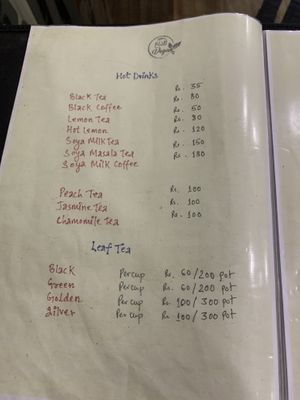 Hot Drinks
Black Tea Rs. 35
Black Coffee Rs. 80
Lemon Tea Rs. 50
Hot Lemon Rs. 90
Soya Milk Tea Rs. 120
Soya Masala Tea Rs. 150
Soya Milk Coffee Rs. 180
Peach Tea Rs. 100
Jasmine Tea Rs. 100
Chamomile Tea Rs. 100
Leaf Tea
Black Per cup Rs. 60/200 pot
Green Per cup Rs. 60/200 pot
Golden Per cup Rs. 100/300 pot
Silver Per cup Rs. 100/300 pot